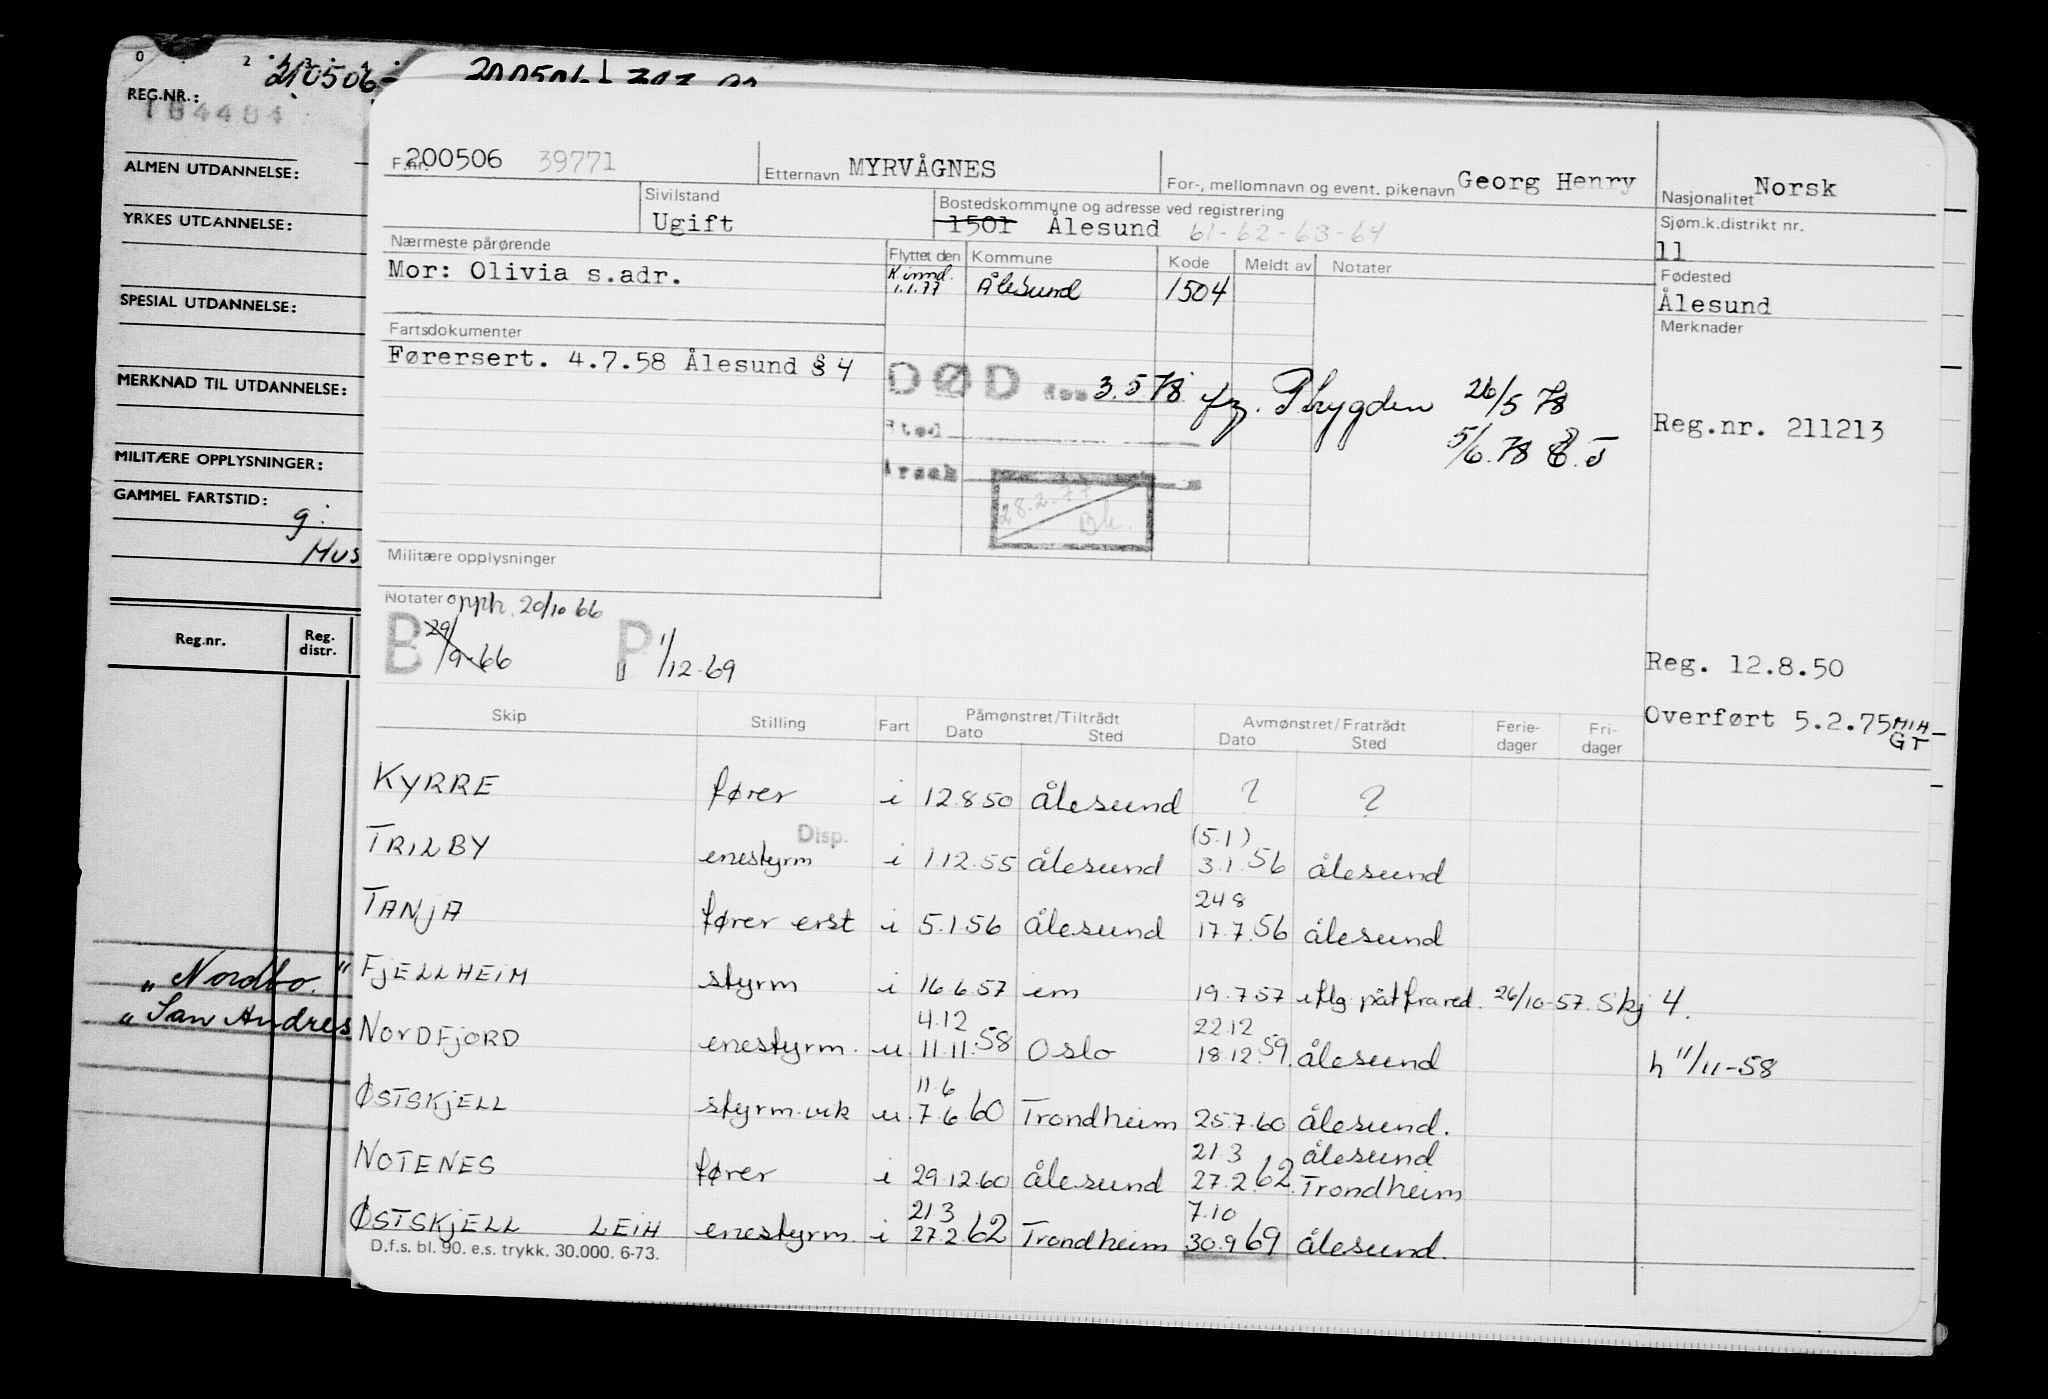 0 2
210506-
REG.NR.:
184484
ALMEN UTDANNELSE:
YRKES UTDANNELSE:
SPESIAL UTDANNELSE:
MERKNAD TIL UTDANNELSE:
MILITÆRE OPPLYSNINGER:
GAMMEL FARTSTID:
g.
Mus
Reg.nr. Reg. distr.
„Nordbo."
„San Andres
F.nr. 200506 39771 Etternavn MYRVÅGNES For-, mellomnavn og event. pikenavn Georg Henry Nasjonalitet Norsk
Sivilstand Ugift
Bostedskommune og adresse ved registrering
1501 Ålesund 61-62-63-64
Sjøm.k.distrikt nr.
11
Nærmeste pårørende
Mor: Olivia s.adr.
Flyttet den Kommune Kode Meldt av Notater
K.innd. 1.1.77 Ålesund 1504
Fødested
Ålesund
Merknader
Fartsdokumenter
Førersert. 4.7.58 Ålesund § 4
DØD den 3.5.78 fg. Ptrygden 26/5 78
5/6.78
Sted
Årsak
28.2.77
Reg.nr. 211213
Militære opplysninger
Notater opph. 20/10 66
B 29/9-66 P 1/12-69
Reg. 12.8.50
Overført 5.2.75 MIH-GT
Skip Stilling Fart Påmønstret/Tiltrådt Dato Sted Avmønstret/Fratrådt Dato Sted Ferie-dager Fri-dager
KYRRE fører i 12.8.50 Ålesund ? ?
Disp. (5.1)
TRILBY enestyrm i 1.12.55 Ålesund 3.1.56 Ålesund
24.8
TANJA fører erst i 5.1.56 Ålesund 17.7.56 Ålesund
FJELLHEIM styrm i 16.6.57 em 19.7.57 iflg. påt fra red. 26/10-57. Skj 4.
4.12 22.12
NORDFJORD enestyrm. u. 11.11.58 Oslo 18.12.59. Ålesund h 11/11-58
11.6
ØSTSKJELL styrm.vik u. 7.6.60 Trondheim 25.7.60 Ålesund.
21.3 Ålesund
NOTENES fører i 29.12.60 Ålesund 27.2.62. Trondheim
21.3 7.10
ØSTSKJELL LEIH enestyrm. i 27.2.62 Trondheim 30.9.69 Ålesund.
D.f.s. bl. 90. e.s. trykk. 30.000. 6-73.